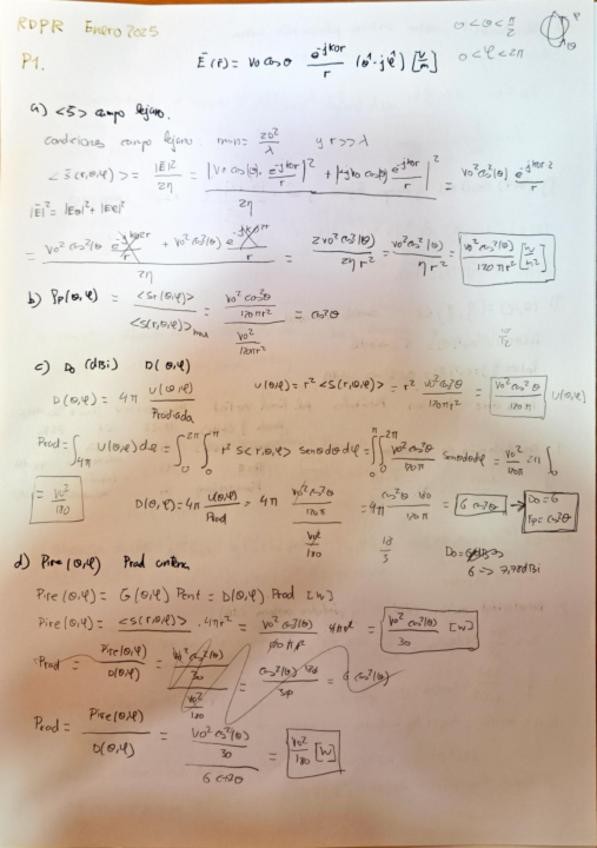 RDPR Enero 2025
0 < θ < π/2
P1.
Ē(r̄) = V0 cosθ e^-jk0r / r (θ̂ - jφ̂) [V/m]
0 < φ < 2π
a) <S̄> campo lejano.
condiciones campo lejano. rmin = 2D²/λ y r >> λ
<S̄(r,θ,φ)> = |Ē|²/2η = (|V0 cos(θ) · e^-jk0r / r|² + |-jV0 cos(θ) e^-jk0r / r|²) / 2η = V0² cos²(θ) e^-jk0r·2 / r
|Ē|² = |Eθ|² + |Eφ|²
= (V0² cos²(θ) e^-jk02r / r + V0² cos²(θ) e^-jk02r / r) / 2η = 2V0² cos²(θ) / 2η r² = V0² cos²(θ) / η r² = V0² cos²(θ) / 120πr² [W/m²]
b) Pp(θ,φ) = <Sr(θ,φ)> / <S(r,θ,φ)>max = (V0² cos²θ / 120πr²) / (V0² / 120πr²) = cos²θ
c) D0 (dBi) D(θ,φ)
D(θ,φ) = 4π U(θ,φ) / Pradiada
U(θ,φ) = r² <S(r,θ,φ)> = r² V0² cos²θ / 120πr² = V0² cos²θ / 120π U(θ,φ)
Prad = ∫4π U(θ,φ) dΩ = ∫0^2π ∫0^π r² S<r,θ,φ> senθ dθ dφ = ∫0^2π ∫0^π V0² cos²θ / 120π senθ dθ dφ = V0² / 120π 2π ∫0
= V0² / 180
D(θ,φ) = 4π U(θ,φ) / Prad = 4π (V0² cos²θ / 120π) / (V0² / 180) = 4π cos²θ 180 / 120π = 6 cos²θ → D0 = 6
Pp = cos²θ
18/3
D0 =
6 => 7,78dBi
d) Pire(θ,φ) Prad antena
Pire(θ,φ) = G(θ,φ) Pent = D(θ,φ) · Prad [W]
Pire(θ,φ) = <S(r,θ,φ)> · 4πr² = V0² cos²(θ) / 120πr² 4πr² = V0² cos²(θ) / 30 [W]
Prad = Pire(θ,φ) / D(θ,φ) = (V0² cos²(θ) / 30) / (V0² / 180) = cos²(θ) 180 / 30 = 6 cos²(θ)
Prad = Pire(θ,φ) / D(θ,φ) = (V0² cos²(θ) / 30) / 6 cos²θ = V0² / 180 [W]